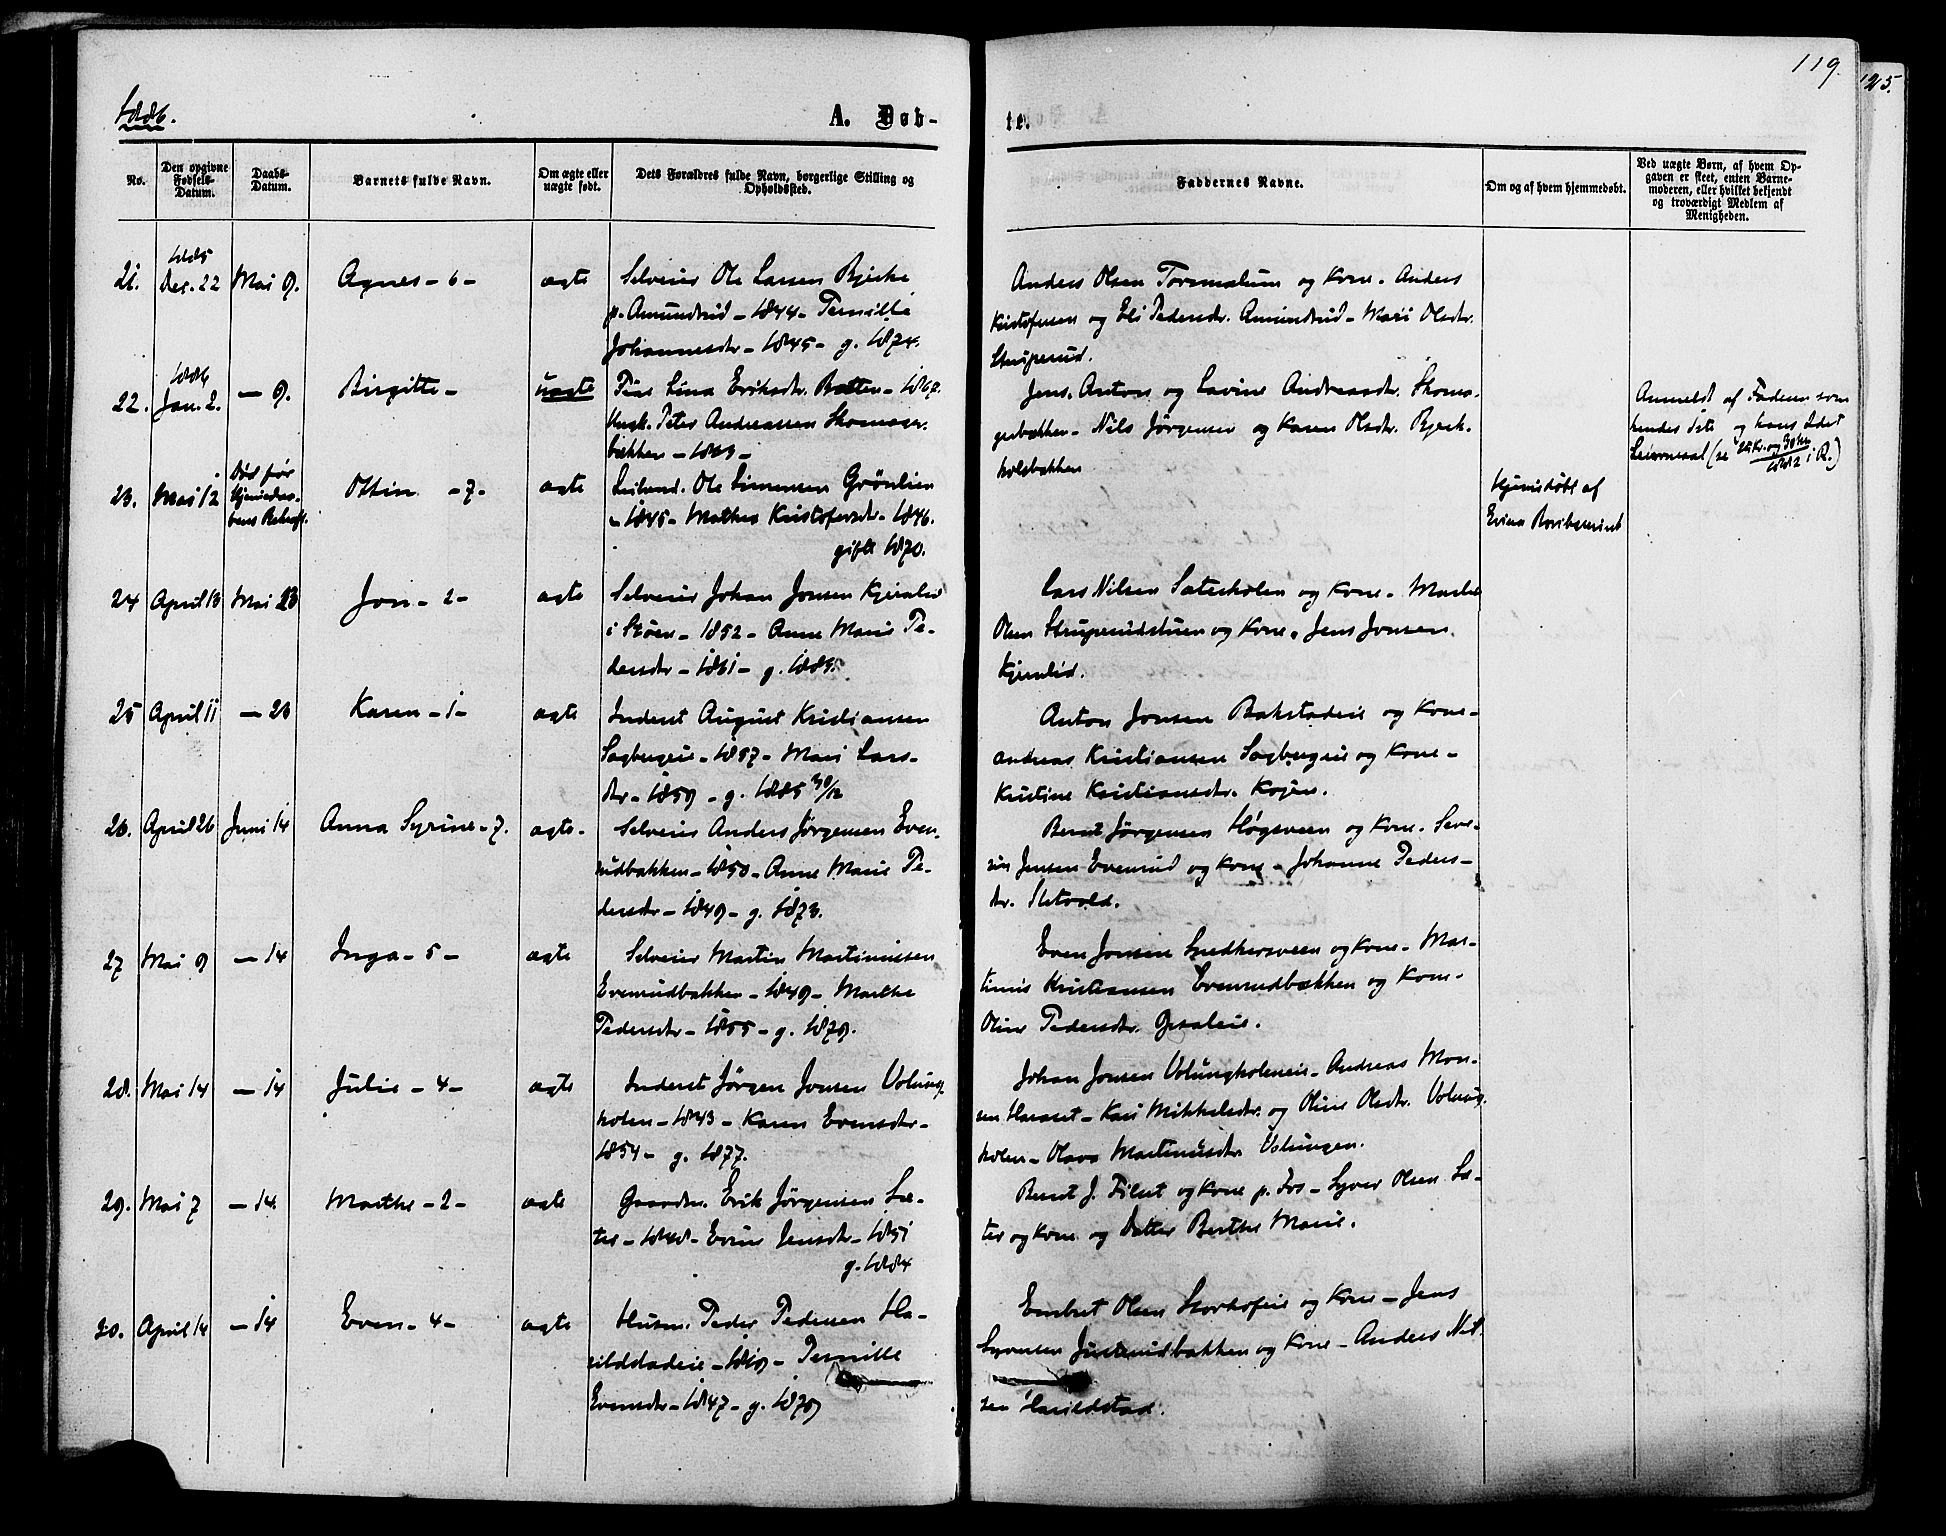 119.
125.
1886.
A. Døb-
te.
No.
Den opgivne Fødsels-Datum.
Daabs-Datum.
Barnets fulde Navn.
Om ægte eller uægte født.
Dets Forældres fulde Navn, borgerlige Stilling og Opholdssted.
Faddernes Navne.
Om og af hvem hjemmedøbt.
Ved uægte Børn, af hvem Op-
gaven er skeet, enten Barne-
moderen, eller hvilket bekjendt
og troværdigt Medlem af
Menigheden.
21. 1885 Dec. 22 Mai 9. Agnes - 6 - ægte
Selveier Ole Larsen Bjerke
p. Amundrud - 1844 - Pernille
Johannesdtr - 1845 - g. 1874.
Anders Olsen og Kone. Anders
Kristofersen og Eli Pedersdtr. Amundrud - Mari Olsdtr.
Struperud.
22. 1886 Jan. 2. - 9. Birgitte - uægte
Pige Lina Eriksdtr. Bakken - 1867.
Ungk. Peter Andreassen Skomager-
bakken - 1863 -
Jens, Anton og Lovine Andreasdtr. Skoma-
gerbakken - Nils Jørgensen og Karen Olsdtr. Bjerk-
holsbakken
Anmeldt af Faderen som
hendes 1ste og hans 2det
Leiermaal (se i R.)
23. Mai 12 Død før Hjemmedaa-
bens Bekræft. Ottin - 7 - ægte
Ole Simensen Grønlien
- 1845 - Mathea Kristofersdtr - 1846.
gift 1870.
Hjemmedøbt af
24 April 13 Mai 23 Jon - 2 - ægte
Selveier Johan Jonsen Kjernlid
i Støen - 1852 - Anne Marie Pe-
dersdtr - 1861 - g. 1885.
Lars Nilsen Sæterholen og Kone - Martin
Olsen Struperudstuen og Kone. Jens Jonsen
Kjernlid.
25 April 11 - 23 Karen - 1 - ægte
Inderst August Kristiansen
Sagbergeie - 1857 - Mari Lars-
dtr - 1859 - g. 1885 30/12
Anton Jonsen Bakstadeie og Kone -
Andreas Kristiansen Sagbergeie og Kone -
Kristine Kristiansdtr. Kojen.
26. April 26 Juni 14 Anna Syrine - 7. ægte -
Selveier Anders Jørgensen Even-
rudbakken - 1850 - Anne Marie Pe-
dersdtr - 1849 - g. 1873.
Bernt Jørgensen Høgsveen og Kone. Seve-
rin Jensen Evenrud og Kone - Johanne Peders-
dtr. Netvold.
27 Mai 9 - 14 Inga - 5 - ægte
Selveier Martin Martiniusen
Evenrudbakken - 1849 - Marthe
Pedersdtr - 1855 - g. 1879.
Even Jonsen Snedkersveen og Kone - Mar-
tinius Kristiansen Evenrudbakken og Kone -
Oline Pedersdtr. Graaleie.
28. Mai 14 - 14 Julie - 4 - ægte
Inderst Jørgen Jonsen Volung-
holen - 1843 - Karen Evensdtr -
1854 - g. 1877.
Johan Jonsen Volungholeneie - Andreas Mon-
sen Haraset - Kari Mikkelsdtr. og Oline Olsdtr. Volung-
holen - Olava Martinusdtr Volungen.
29. Mai 7 - 14. Marthe - 2 - ægte
Gaardbr. Erik Jørgensen Sæ-
ter - 1840 - Evine Jensdtr - 1851
g. 1884
Bernt J. Filset og Kone p. Fos - Syver Olsen Sæ-
ter og Kone og Datter Berthe Marie.
30. April 14 - 14 Even - 4 - ægte
Husm. Peder Pedersen Ha-
rildstadeie - Pernille
Evensdtr - 1847 - g. 1870
Embret Olsen Storhofeie og Kone - Jens
Syversen Justenrudbakken og Kone - Anders Nil-
sen Harildstad.